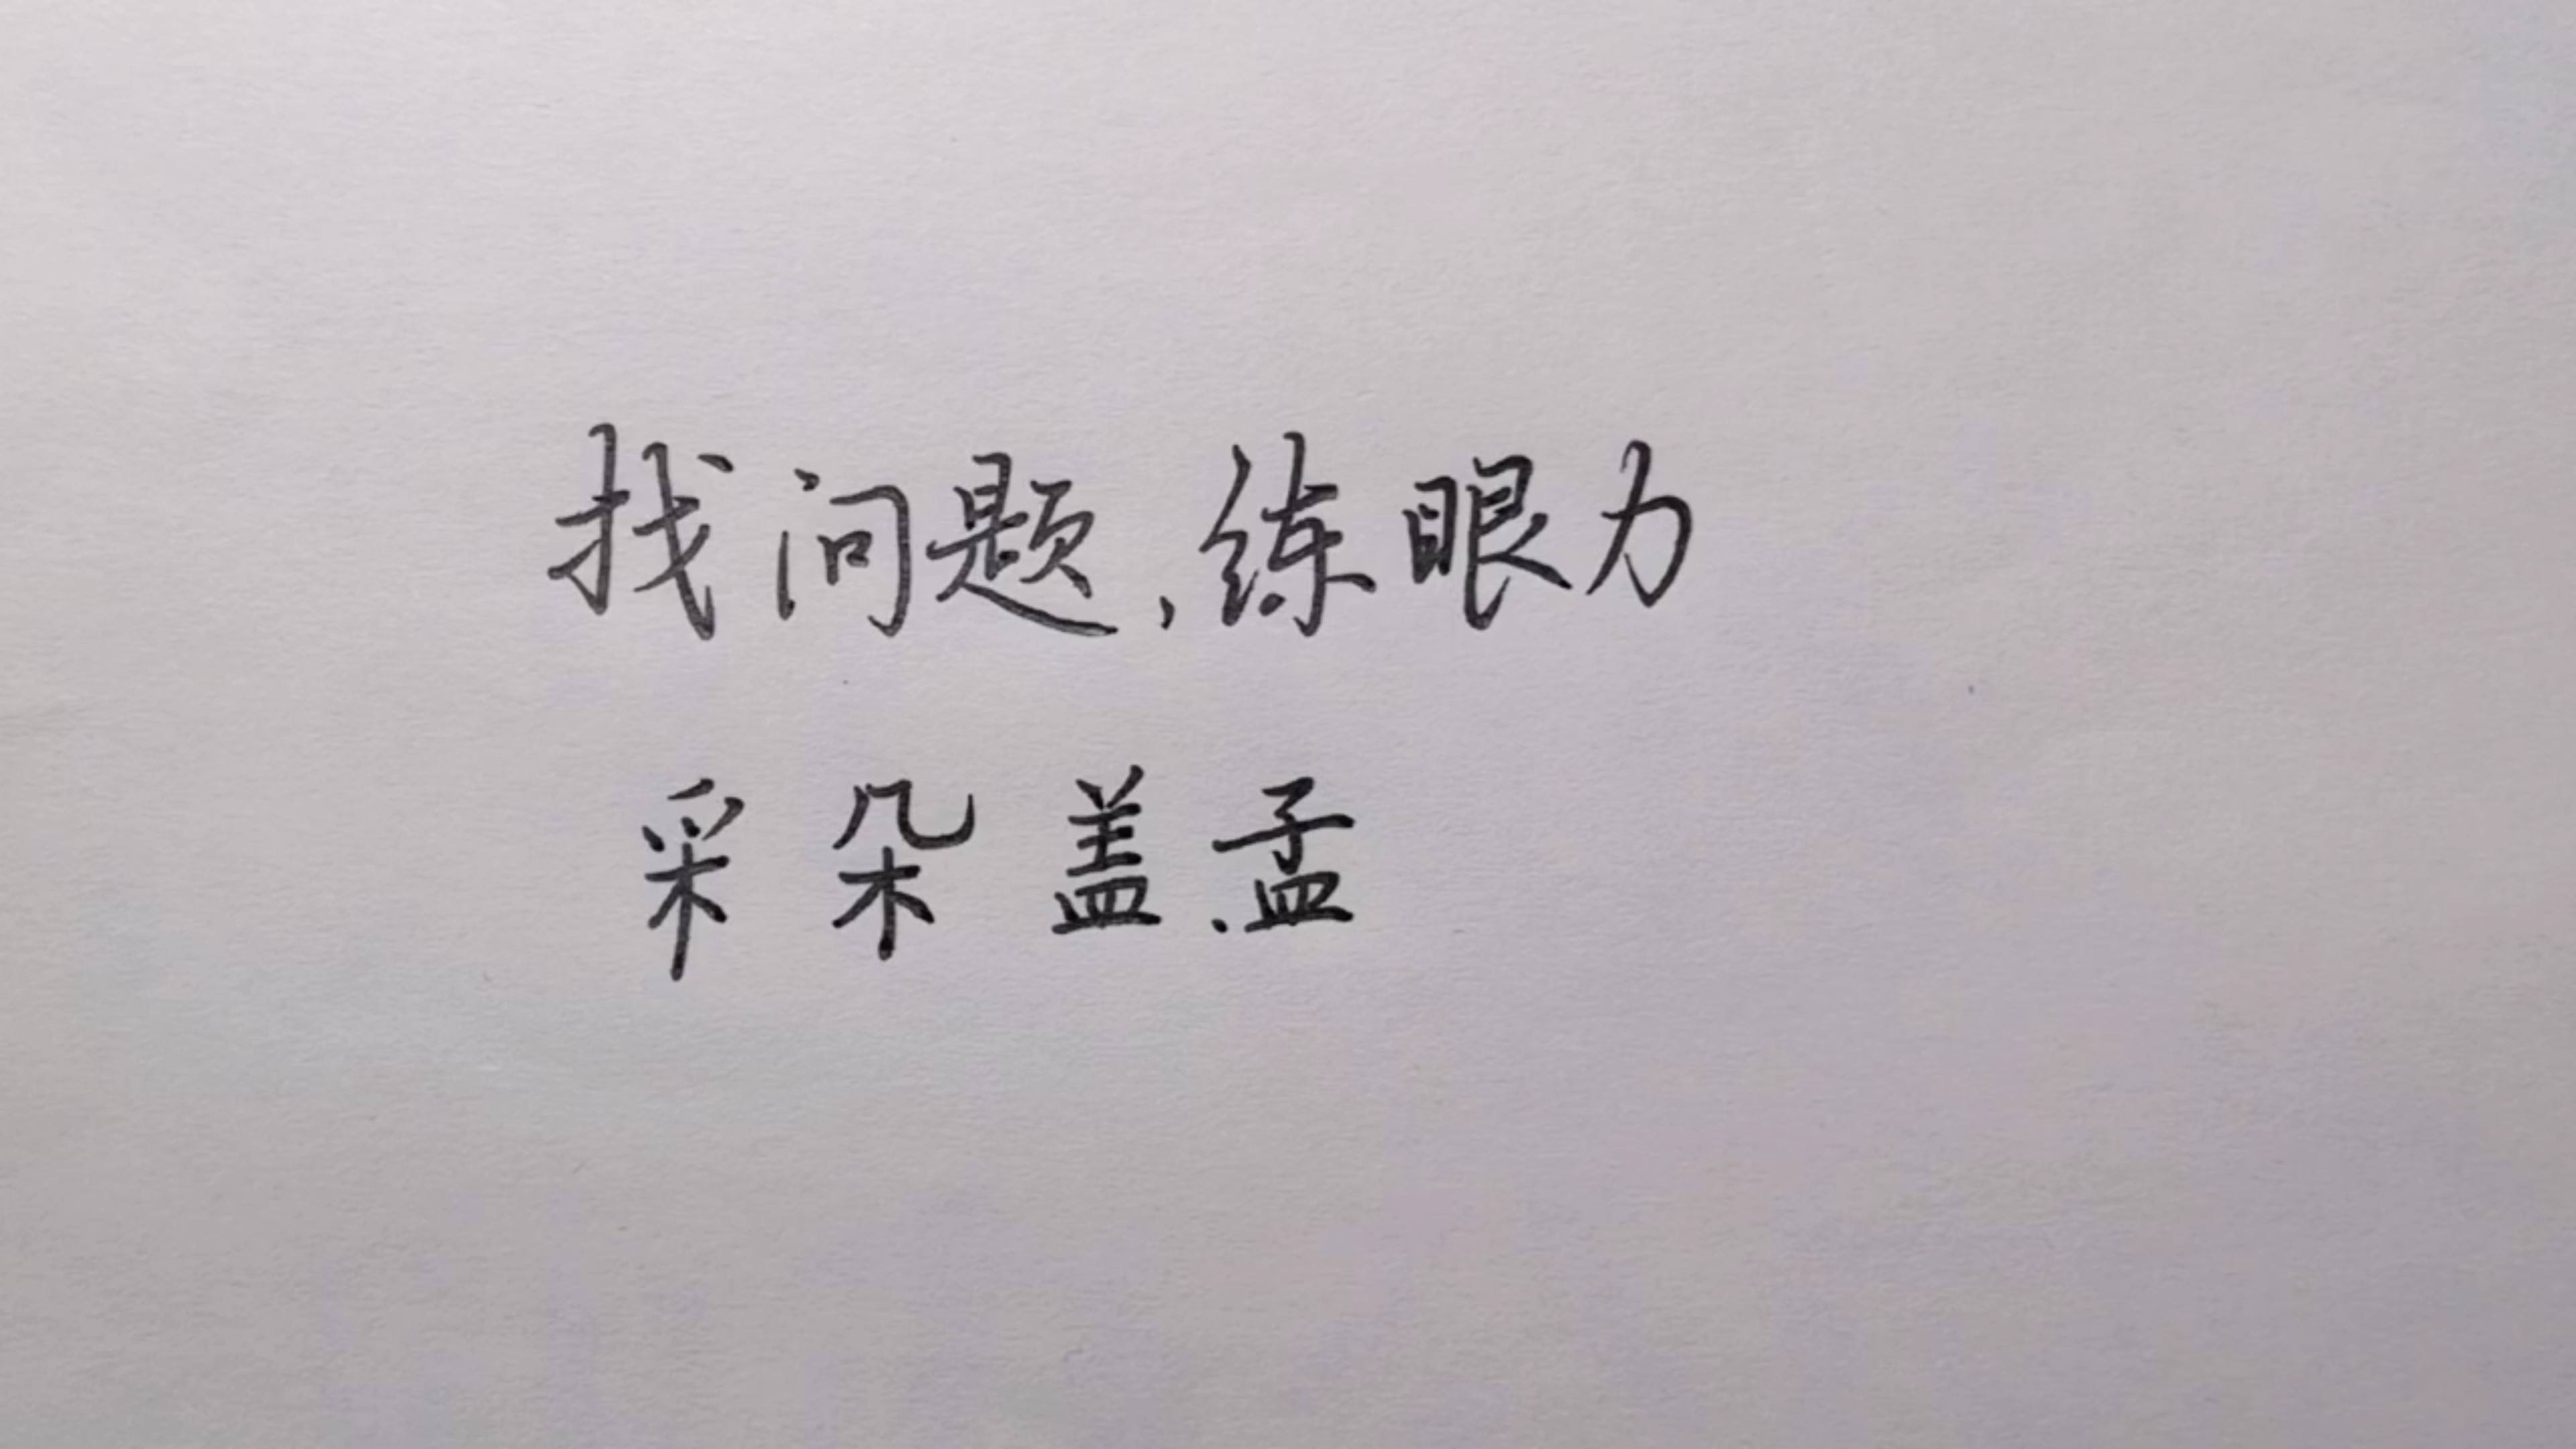 找问题,练眼力
采朵盖.孟